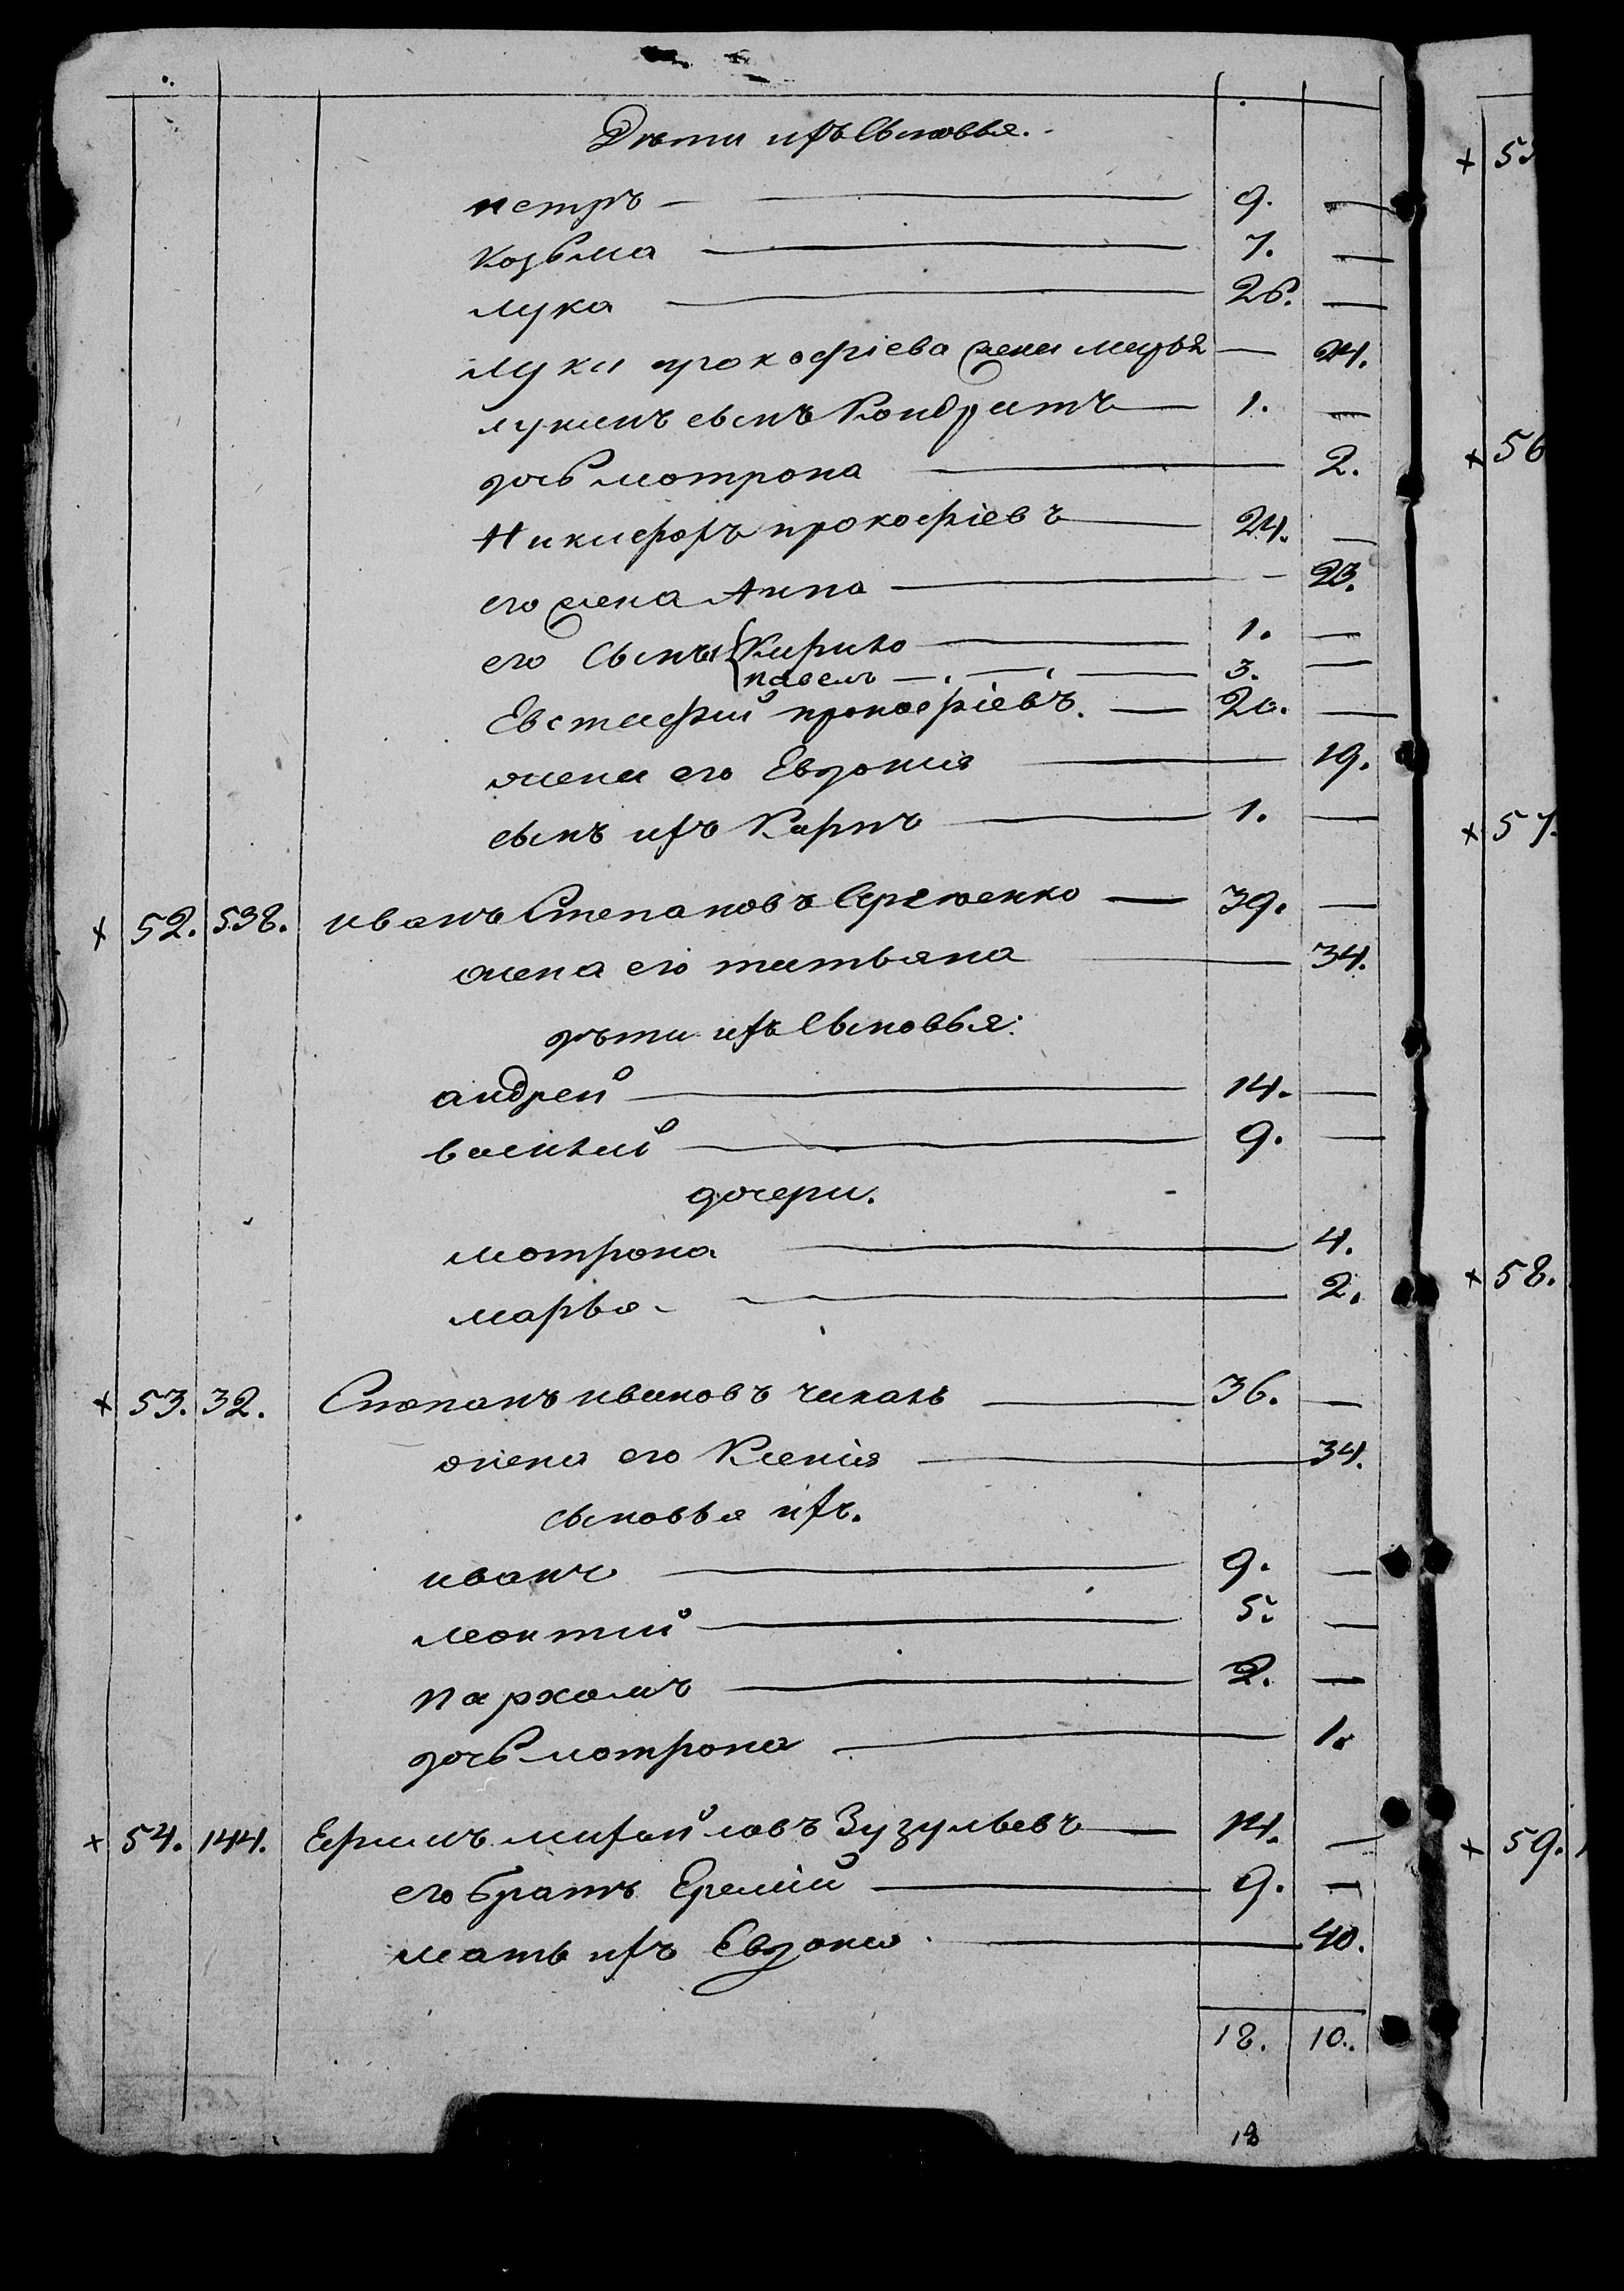 Дѣти ихъ Сыновья.
петръ — 9. —
Козьма — 7. —
лука — 26. —
луки прокофіева жена марья — 24.
лукинъ сынъ Кондратъ — 1. —
дочь мотрона — 2.
Никифоръ прокофіевъ — 24. —
его жена Анна — 23.
его Сыны Кирило — 1. —
павелъ — 3. —
Евстафий прокофіевъ. — 20. —
жена его Евдокия — 19.
сынъ ихъ Карпъ — 1. —
× 52. 538. иванъ Степановъ — 39. —
жена его татьяна — 34.
дѣти ихъ Сыновья:
андрей — 14. —
василий — 9. —
дочери.
мотрона — 4.
марья — 2.
× 53. 32. Степанъ ивановъ чикалъ — 36. —
жена его Ксенія — 34.
сыновья ихъ.
иванъ — 9. —
леонтий — 5. —
пархомъ — 2. —
дочь мотрона — 1.
× 54. 144. михайловъ Зузульевъ — 14. —
его братъ Еремій — 9. —
мать ихъ Евдокия — 40.
18. 10.
18
× 56
× 57.
× 58.
× 59.